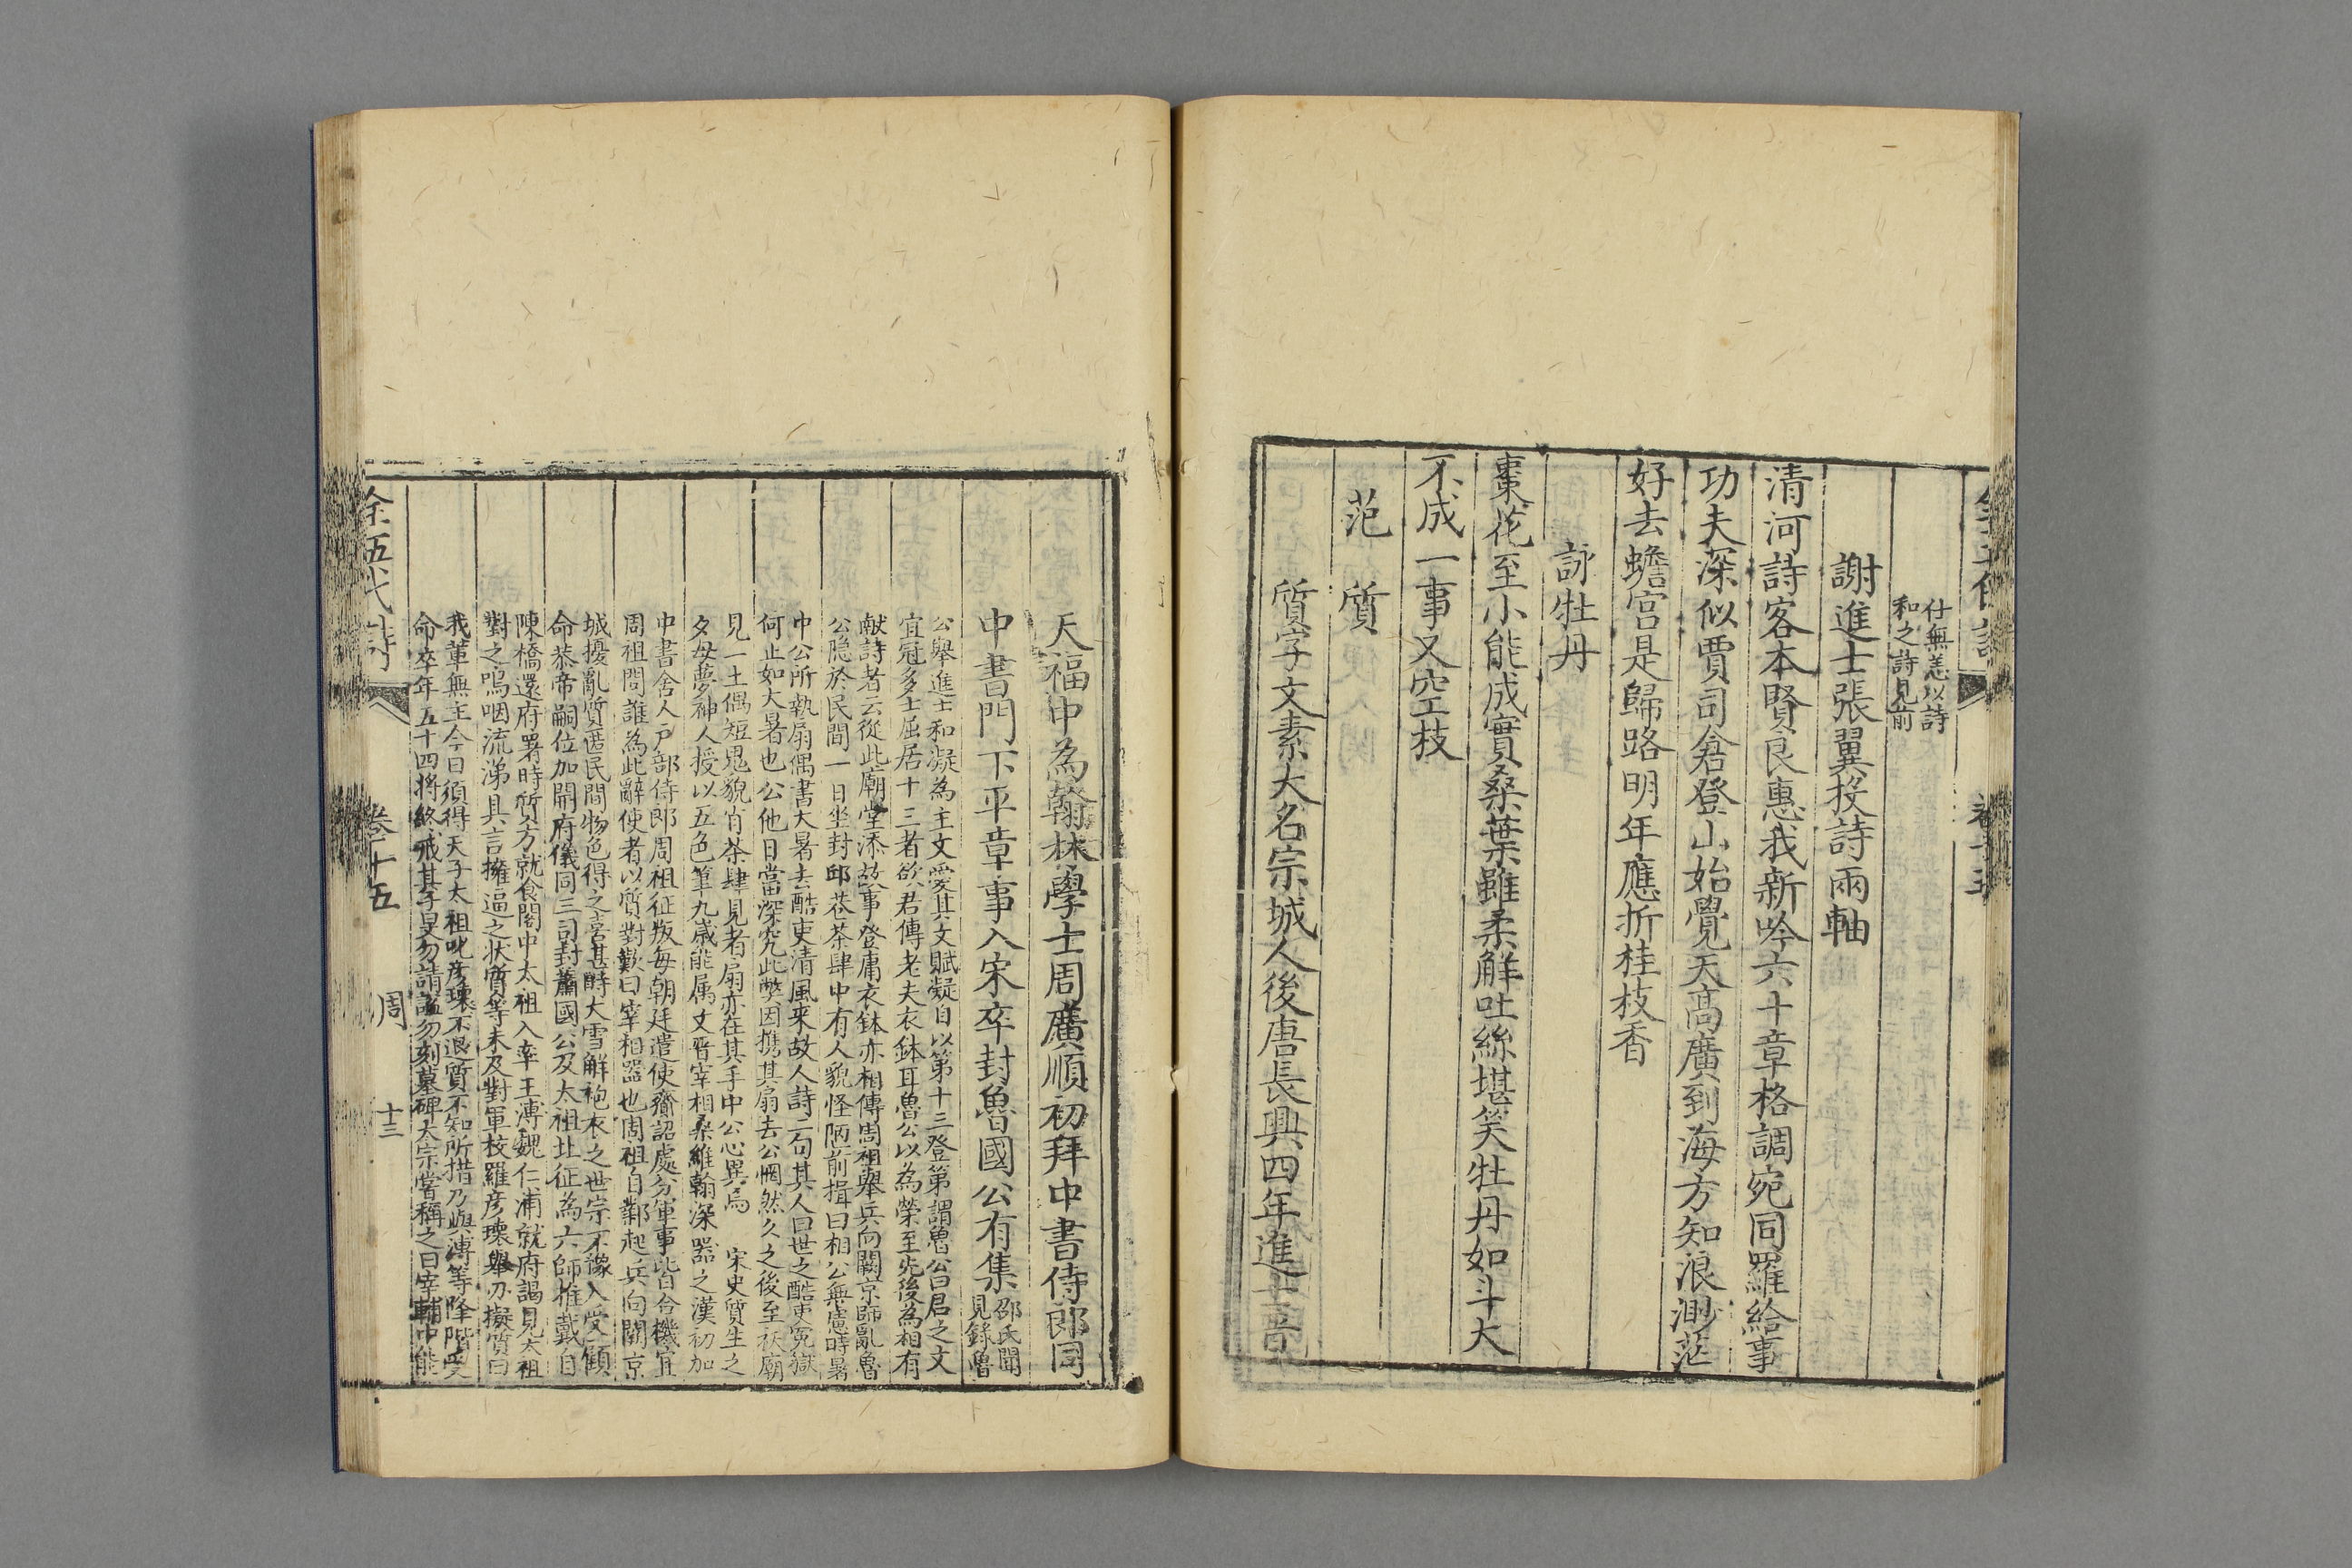 仕無恙以詩
和之詩見前
謝進士張翼投詩兩軸
清河詩客本賢良惠我新吟六十章格調宛同羅給事
功夫深似賈司倉登山始覺天高廣到海方知浪渺茫
好去蟾宮是歸路明年應折桂枝香
詠牡丹
棗花至小能成實桑葉雖柔解吐絲堪笑牡丹如斗大
不成一事又空枝
范質
質字文素大名宗城人後唐長興四年進士晉
天福中為翰林學士周廣順初拜中書侍郎同
中書門下平章事入宋卒封魯國公有集
邵氏聞
見錄魯
公舉進士和凝為主文愛其文賦凝自以第十三登第謂魯公曰君之文
宜冠多士屈居十三者欲君傳老夫衣鉢耳魯公以為榮至先後為相有
献詩者云從此廟堂添故事登庸衣鉢亦相傳周祖舉兵向闕京師亂魯
公隐於民間一日坐封邱巷茶肆中有人貌怪陋前揖曰相公無慮時暑
中公所執扇偶書大暑去酷吏清風来故人詩二句其人曰世之酷吏冤獄
何止如大暑也公他日當深究此弊因携其扇去公惘然久之後至祅廟
見一土偶短鬼貌肖茶肆見者扇亦在其手中公心異焉　宋史質生之
夕母夢神人授以五色筆九歲能属文晉宰相桑維翰深器之漢初加
中書舍人戶部侍郎周祖征叛每朝廷遣使齎詔處分軍事皆合機宜
周祖問誰為此辭使者以質對歎曰宰相器也周祖自鄴起兵向闕京
城擾亂質匿民間物色得之喜甚時大雪解袍衣之世宗不豫入受顧
命恭帝嗣位加開府儀同三司封蕭國公及太祖北征為六師推戴自
陳橋還府署時質方就食閣中太祖入率王溥魏仁浦就府謁見太祖
對之嗚咽流涕具言擁逼之状質等未及對軍校羅彦瓌舉刃擬質曰
我輩無主今日須得天子太祖叱彦瓌不退質不知所措乃與溥等降階受
命卒年五十四將終戒其子旻勿請謚勿刻墓碑太宗嘗稱之曰宰輔中能
全五代詩
卷十五
周
十三